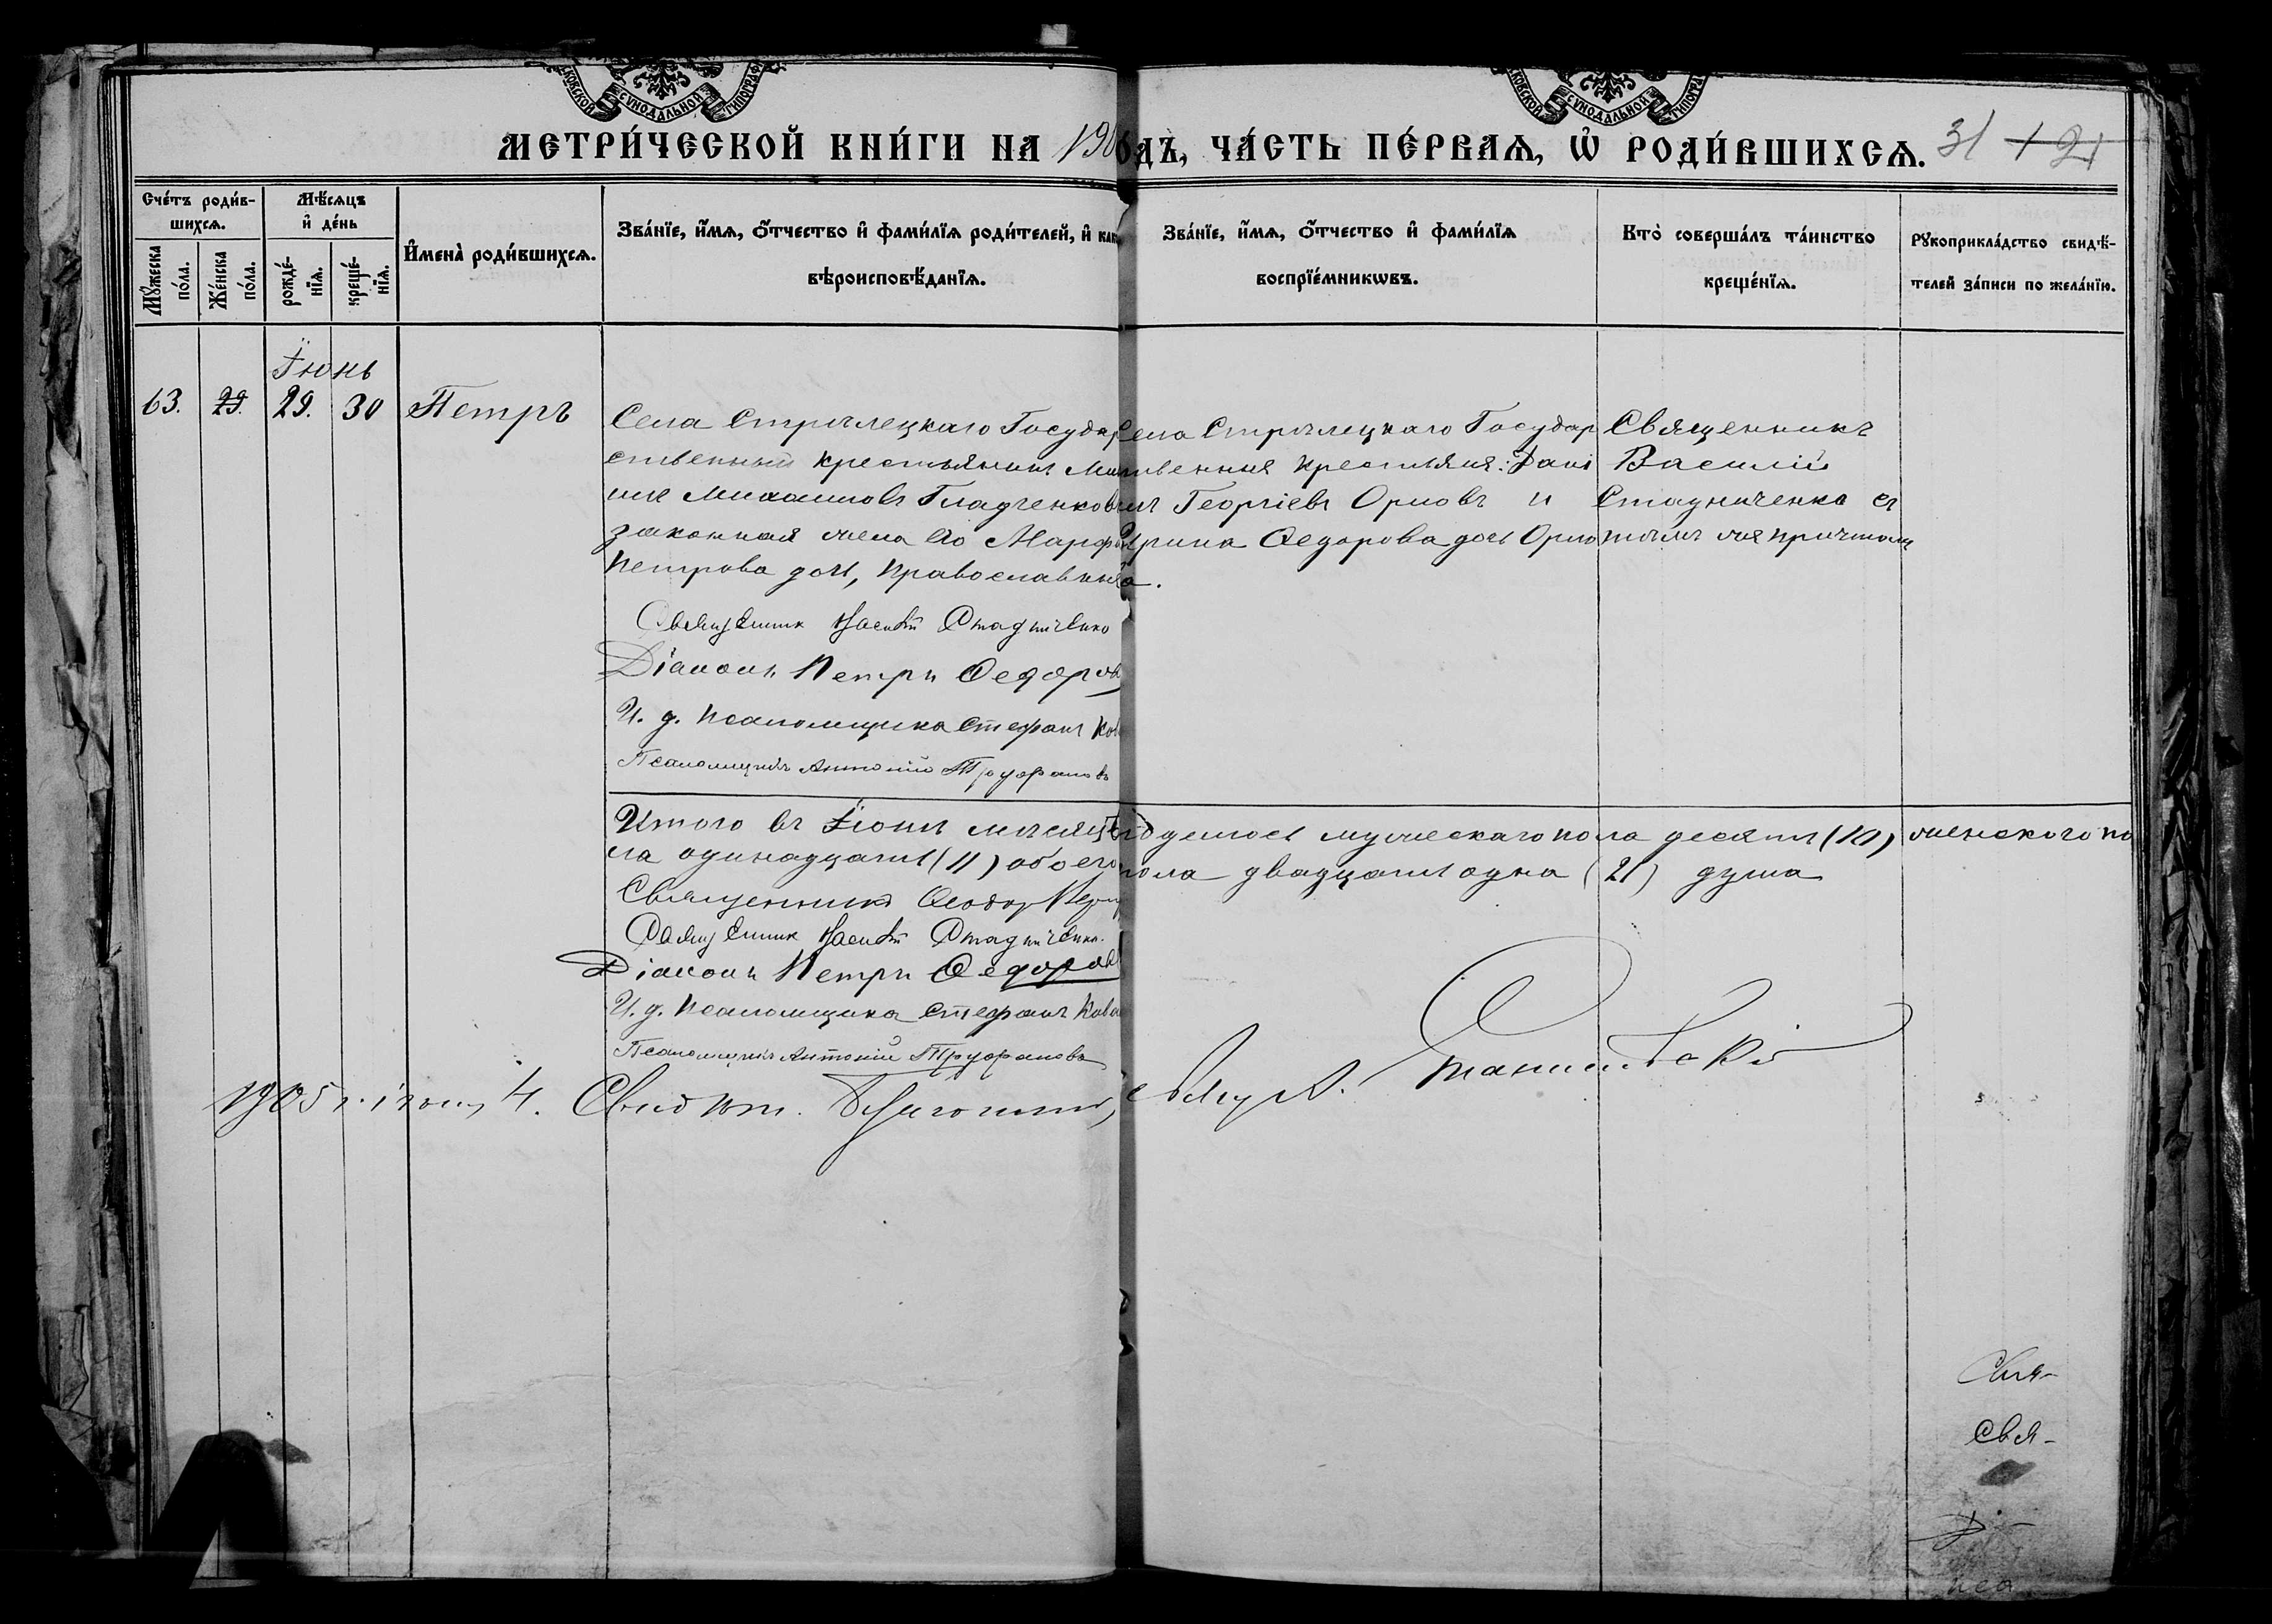 СУНОДАЛЬНОЙ
СУНОДАЛЬНОЙ
МЕТРИ́ЧЕСКОЙ КНИ́ГИ НА 190 ДЪ, ЧА́СТЬ ПЕ́РВАѦ, Ѡ҆ РОДИ́ВШИХСѦ. 31
Сче́тъ роди́в-
шихсѧ.
Мѣ́сѧцъ
и҆ де́нь
Мꙋ́жеска по́ла.
Же́нска по́ла.
рожде́-
нїѧ.
креще́-
нїѧ.
И҆мена̀ роди́вшихсѧ.
Зва́нїе, и҆́мѧ, ѻ҆́тчество и҆ фами́лїѧ роди́телей, и҆ как
вѣроисповѣ́данїѧ.
Зва́нїе, и҆́мѧ, ѻ҆́тчество и҆ фами́лїѧ
воспрїе́мникѡвъ.
Кто̀ соверша́лъ та́инство
креще́нїѧ.
Рꙋкоприкла́дство свидѣ́-
телей за́писи по жела́нїю.
Іюнь
63. 29. 29. 30 Петръ
Села Стрѣлецкаго Государ
ственный крестьянинъ Ми
илъ Михаиловъ Гладченков
законная жена его Марфа
Петрова дочь, православны
Села Стрѣлецкаго Государ
ственныя крестьяня: Дані
илъ Георгіевъ Орловъ и
Ирина Ѳедорова дочь Орло
ва.
Священникъ
Василій
Стадниченко съ
тѣмъ же причтомъ
Священник Василій Стадниченко
Діаконъ Петръ Ѳедоров
И. д. псаломщика Стефанъ Ков
Псаломщикъ Антоній Труфановъ
Итого въ Іюнѣ мѣсяцѣ родилось мужескаго пола десять (10) женскаго по
ла одинадцать (11) обоего пола двадцать одна (21) душа
Священникъ Ѳеодор
Священник Василій Стадниченко.
Діаконъ Петръ Ѳедоров
И. д. псаломщика Стефанъ Кова
Псаломщикъ Антоній Труфановъ
1905 г. 4.
Свя-
Свя-
Д
пса